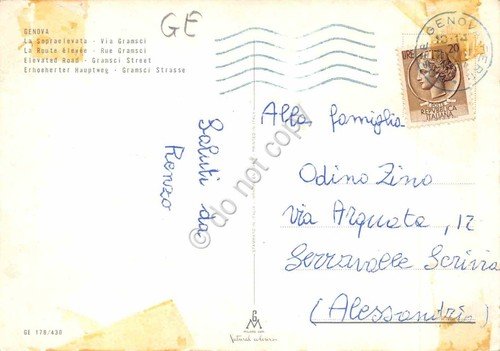 GE
GENOVA
La Sopraelevata - Via Gramsci
La Route Elevée - Rue Gramsci
Elevated Road - Gramsci Street
Erhoeherter Hauptweg - Gramsci Strasse
Saluti da
Renzo
GENOVA
LIRE 20
REPUBBLICA
ITALIANA
Alla famiglia
Odino Zino
via Arquata, 12
Serravalle Scrivia
(Alessandria)
do not copy
GE 178/430